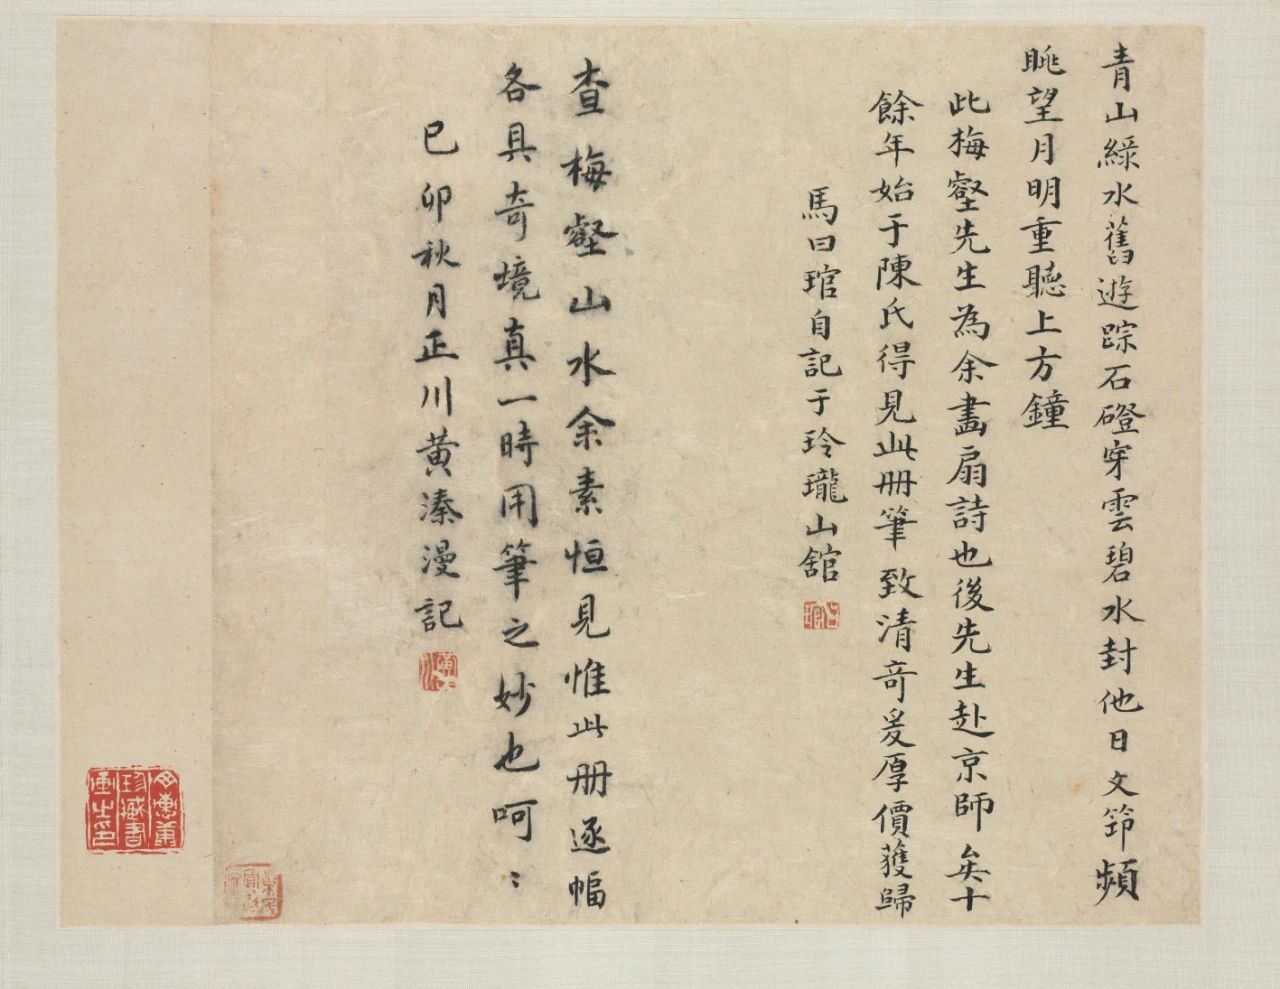 青山綠水舊遊踪石磴穿雲碧水封他日文筇頻
眺望月明重聽上方鐘
此梅壑先生為余畫扇詩也後先生赴京師矣十
餘年始于陳氏得見此冊筆致清奇爰厚價獲歸
馬曰琯自記于玲瓏山舘
查梅壑山水余素恒見惟此册逐幅
各具奇境真一時用筆之妙也呵〻
巳卯秋月正川黃溱漫記
曰琯
珍藏書